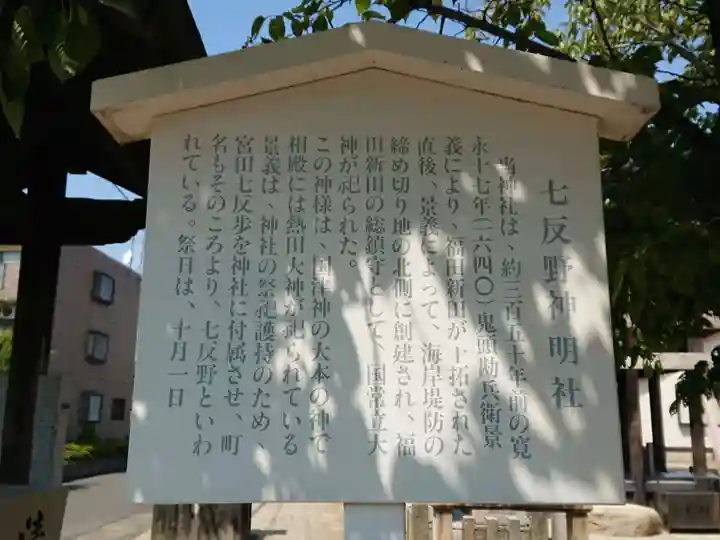 七反野神明社
当神社は、約三百五十年前の寛
永十七年(一六四〇)鬼頭勘兵衛景
義により、福田新田が干拓された
直後、景義によって、海岸堤防の
締め切り地の北側に創建され、福
田新田の総鎮守として、国常立大
神が祀られた。
この神様は、国津神の大本の神で
相殿には熱田大神が祀られている
景義は、神社の祭祀護持のため、
宮田七反歩を神社に付属させ、町
名もそのころより、七反野といわ
れている。祭日は、十月一日